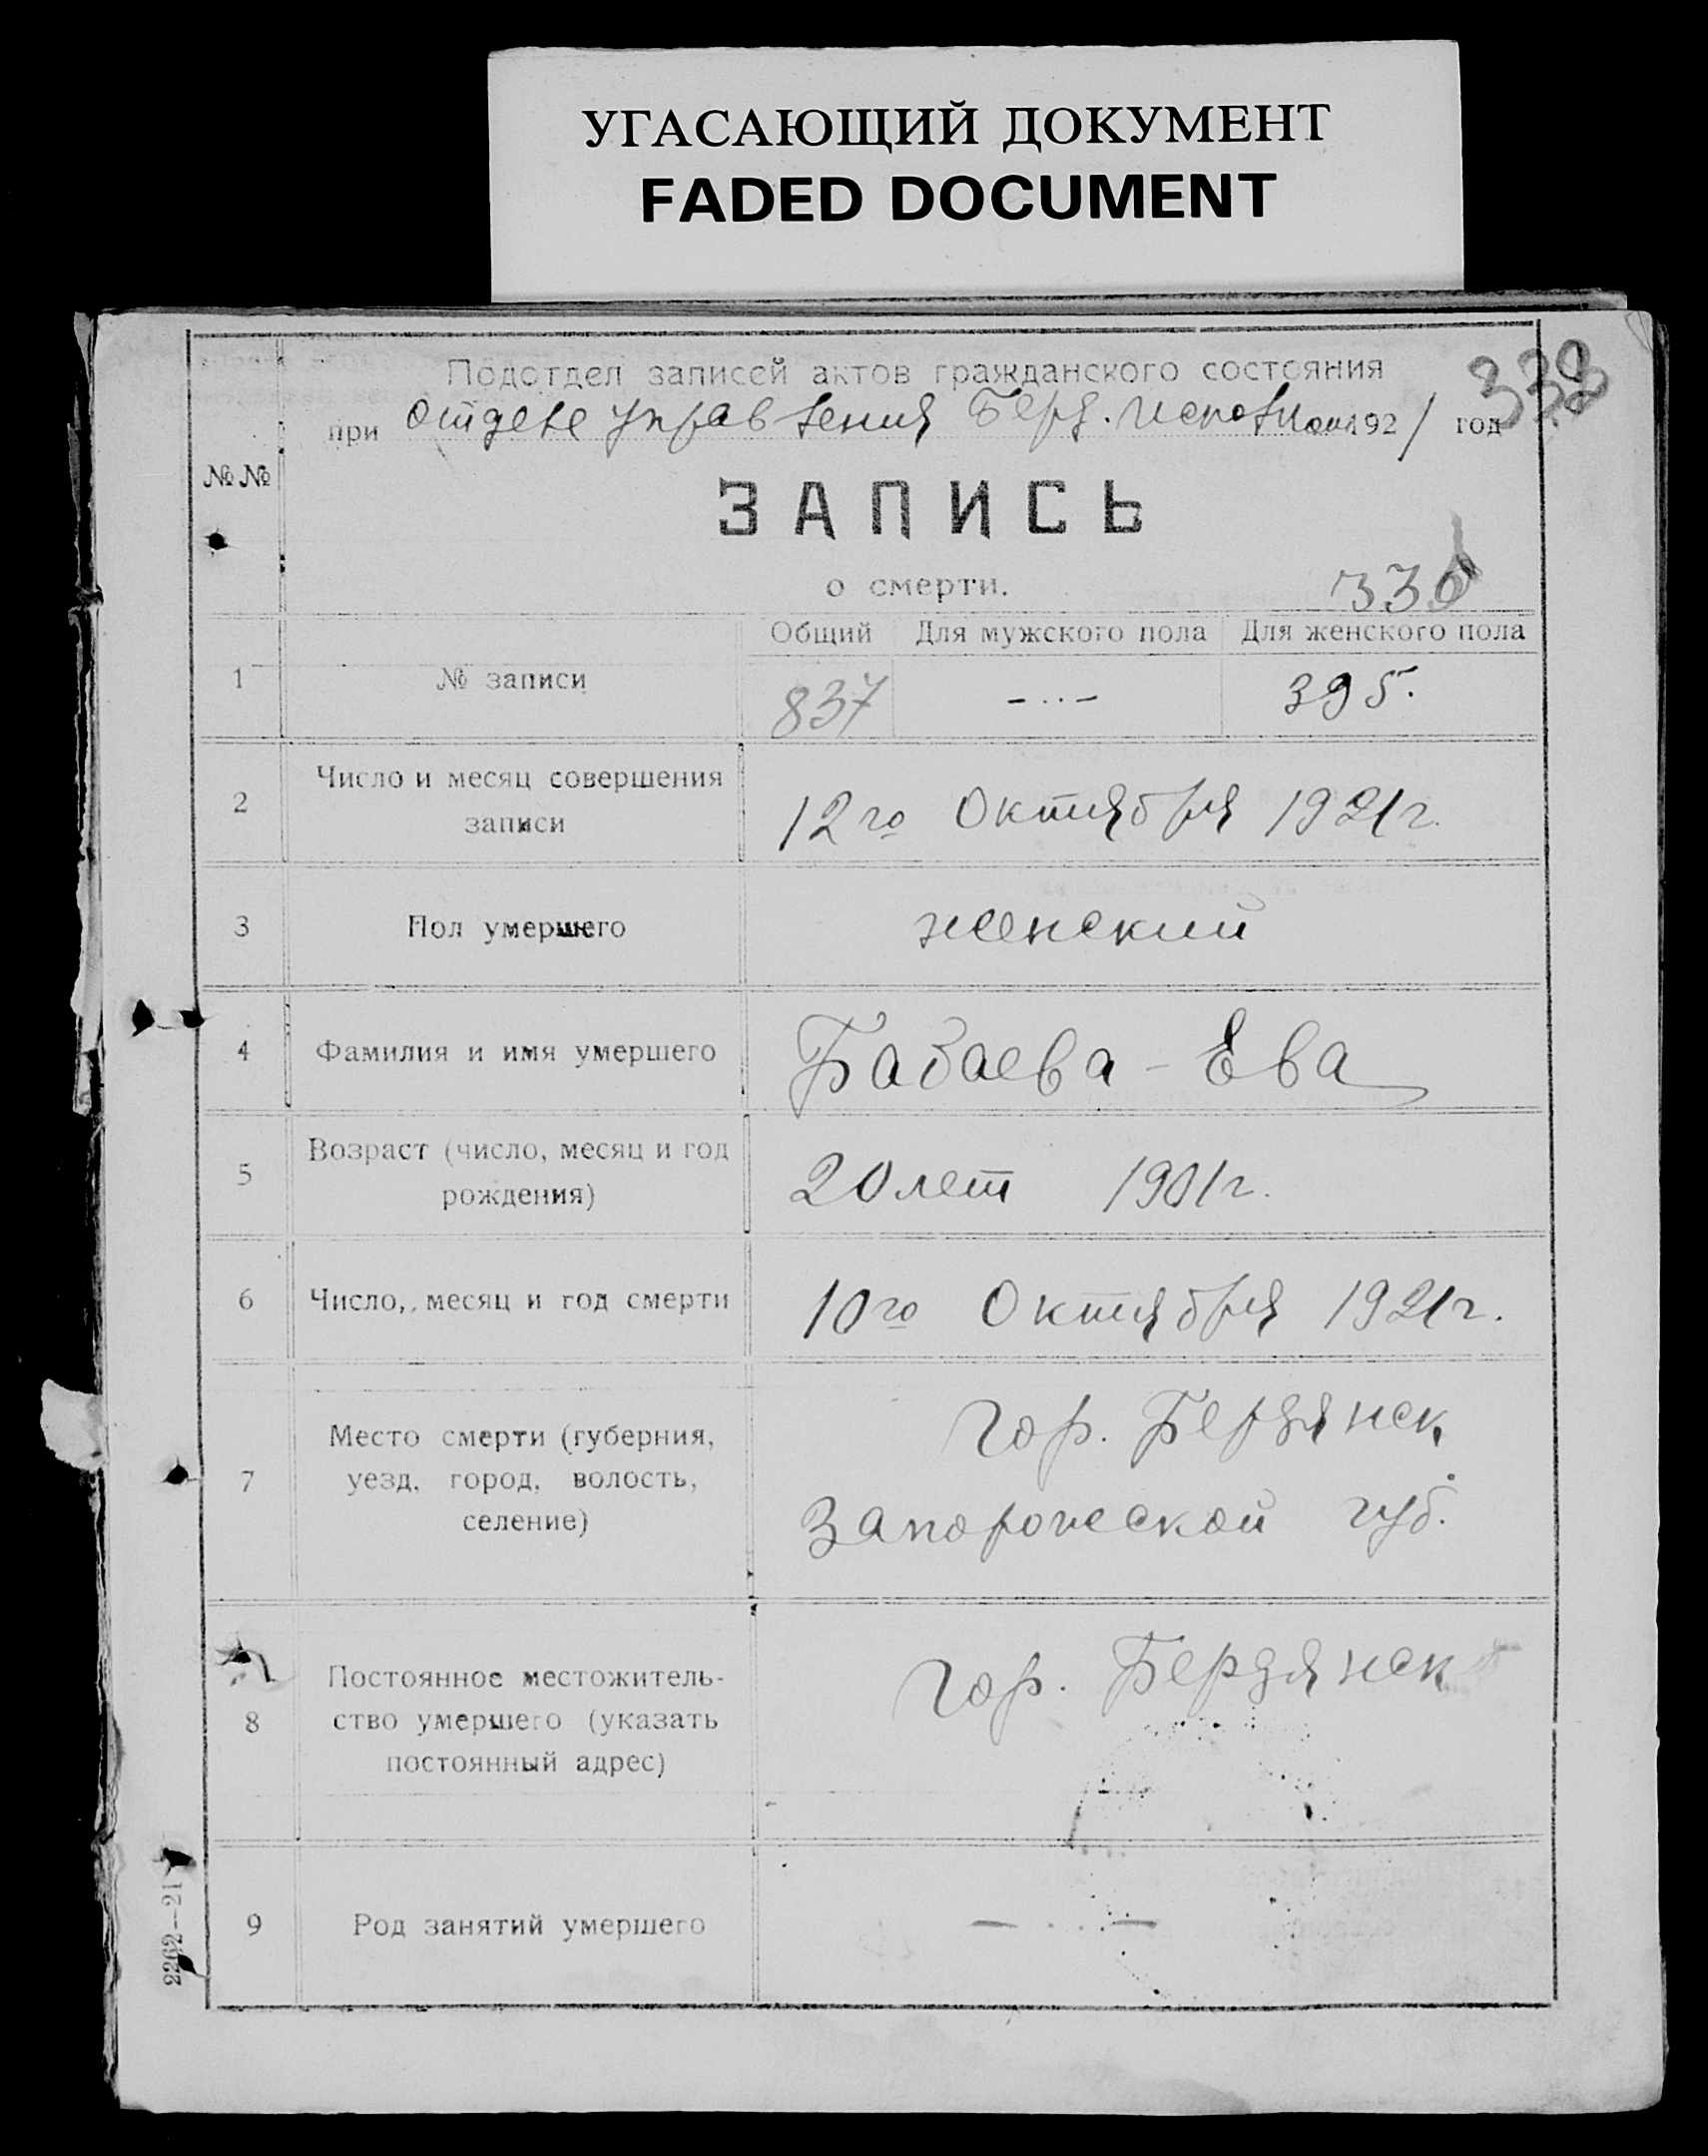 УГАСАЮЩИЙ ДОКУМЕНТ
FADED DOCUMENT
338
Подотдел записей актов гражданского состояния
при отделе управления Берд. Исполком 1921 год
№№
ЗАПИСЬ
о смерти.
Общий Для мужского пола Для женского пола
1 № записи 837 - .. - 395.
2 Число и месяц совершения
записи
12го Октября 1921г.
3 Пол умершего женский
4 Фамилия и имя умершего Бабаева - Ева
5 Возраст (число, месяц и год
рождения)
20 лет 1901г.
6 Число, месяц и год смерти 10го Октября 1921г.
7 Место смерти (губерния,
уезд, город, волость,
селение)
гор. Бердянск
Запорожской губ.
8 Постоянное местожитель-
ство умершего (указать
постоянный адрес)
гор. Бердянск
9 Род занятий умершего - .. -
2262—21